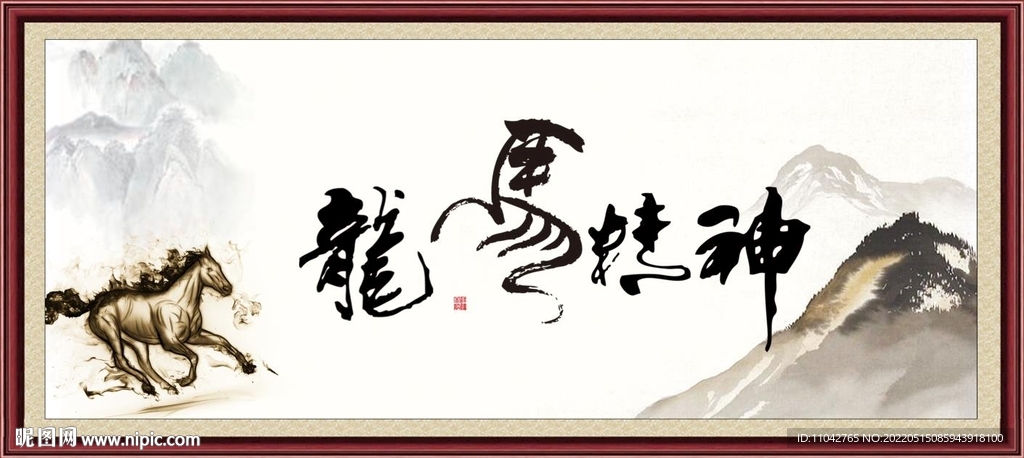 龍馬精神
昵图网 www.nipic.com
ID:11042765 NO:20220515085943918100